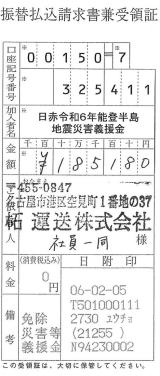 振替払込請求書兼受領証
口座記号番号 00150 7
325411
加入者名 日赤令和6年能登半島
地震災害義援金
金額 千 百 十 万 千 百 十 円
¥185180
おなまえ
〒455-0847
名古屋市港区空見町1番地の37
柘運送株式会社
社員一同 様
料金 (消費税込み) 0 円
日附印
06-02-05
T501000111
2730 ユウチョ
(21255 )
N94230002
備考 免除
災害等
義援金
この受領証は、大切に保管してください。